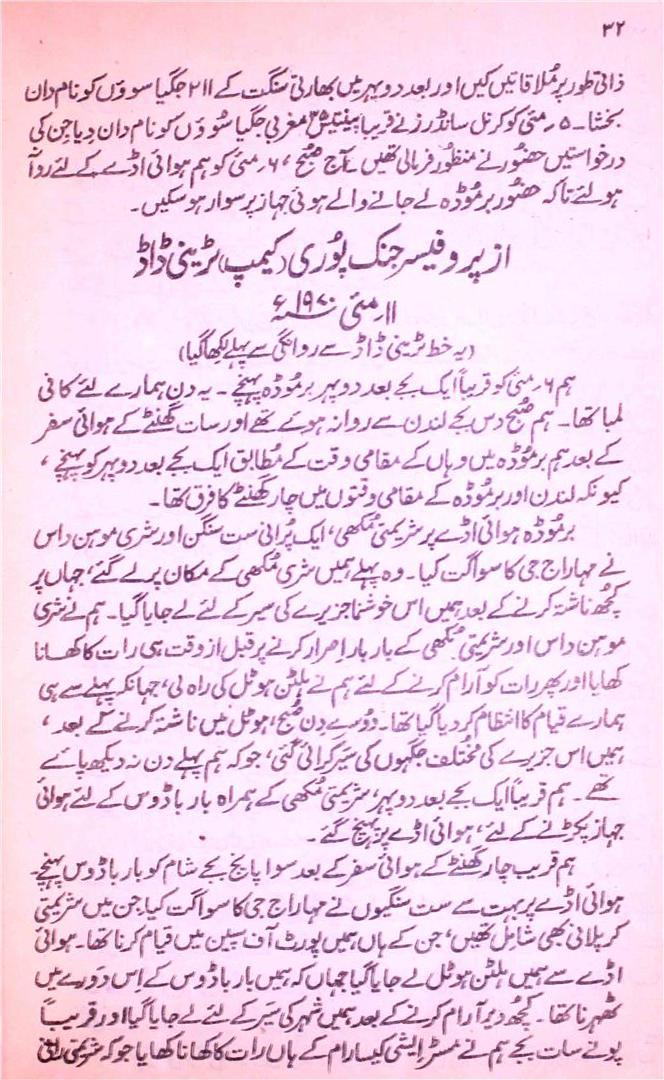 ۳۲
ذاتی طور پر مُلاقاتیں کیں اور بعد دوپہر میں بھارتی سنگت کے ۲۱۱ جگیا سوؤں کو نام دان
بخشا۔ ۵؍مئی کو کرنل سانڈرز نے قریباً پینتیس ۳۵ مغربی جگیا سُوؤں کو نام دان دِیا جن کی
درخواستیں حضُور نے منظُور فرمالی تھیں۔ آج صُبح ، ۶؍مئی کو ہم ہوائی اڈے کے لئے روا
ہولئے تاکہ حضُور برمُوڈہ لے جانے والے ہوئی جہاز پر سوار ہو سکیں۔
از پروفیسر جنک پُوری (کیمپ) ٹرینی ڈاڈ
۱۱؍مئی ۱۹۷۰ء
(یہ خط ٹرینی ڈاڈ سے روانگی سے پہلے لِکھا گیا)
ہم ۶؍مئی کو قریباً ایک بجے بعد دوپہر برمُوڈہ پہنچے۔ یہ دِن ہمارے لئے کافی
لمبا تھا۔ ہم صُبح دس بجے لندن سے روانہ ہوئے تھے اور سات گھنٹے کے ہوائی سفر
کے بعد ہم برمُوڈہ میں وہاں کے مقامی وقت کے مُطابق ایک بجے بعد دوپہر کو پہنچے ،
کیونکہ لندن اور برمُوڈہ کے مقامی وقتوں میں چار گھنٹے کا فرق تھا۔
برمُوڈہ ہوائی اڈے پر شریمتی مُکھی، ایک پُرانی ست سنگن اور شری موہن داس
نے مہاراج جی کا سواگت کیا۔ وہ پہلے ہمیں شری مُکھی کے مکان پر لے گئے، جہاں پر
کچُھ ناشتہ کرنے کے بعد ہمیں اس خوشنما جزیرے کی سیر کے لئے لے جایا گیا۔ ہم نے شری
موہن داس اور شریمتی مُکھی کے بار بار اِصرار کرنے پر قبل از وقت ہی رات کا کھانا
کھایا اور پھر رات کو آرام کرنے کے لئے ہم نے ہلٹن ہوٹل کی راہ لی، جہانکہ پہلے سے ہی
ہمارے قیام کا انتظام کر دیا گیا تھا۔ دُوسرے دن صُبح، ہوٹل میں ناشتہ کرنے کے بعد ،
ہمیں اس جزیرے کی مُختلف جگہوں کی سَیر کرائی گئی، جو کہ ہم پہلے دن نہ دیکھ پائے
تھے۔ ہم قریباً ایک بجے بعد دوپہر، شریمتی مُکھی کے ہمراہ بارباڈوس کے لئے ہوائی
جہاز پکڑنے کے لئے، ہوائی اڈے پر پہنچ گئے۔
ہم قریب چار گھنٹے کے ہوائی سفر کے بعد سوا پانچ بجے شام کو بارباڈوس پہنچے۔
ہوائی اڈے پر بہت سے ست سنگیوں نے مہاراج جی کا سواگت کیا جن میں شریمتی
کرپلانی بھی شامِل تھیں، جن کے ہاں ہمیں پورٹ آف سپین میں قیام کرنا تھا۔ ہوائی
اڈے سے ہمیں ہلٹن ہوٹل لے جایا گیا جہاں کہ ہمیں بارباڈوس کے اِس دَورے میں
ٹھہرنا تھا۔ کچُھ دیر آرام کرنے کے بعد ہمیں شہر کی سَیر کے لئے لے جایا گیا اور قریباً
پونے سات بجے ہم نے مسٹر ایشی کیسا رام کے ہاں رات کا کھانا کھایا جو کہ شریمتی